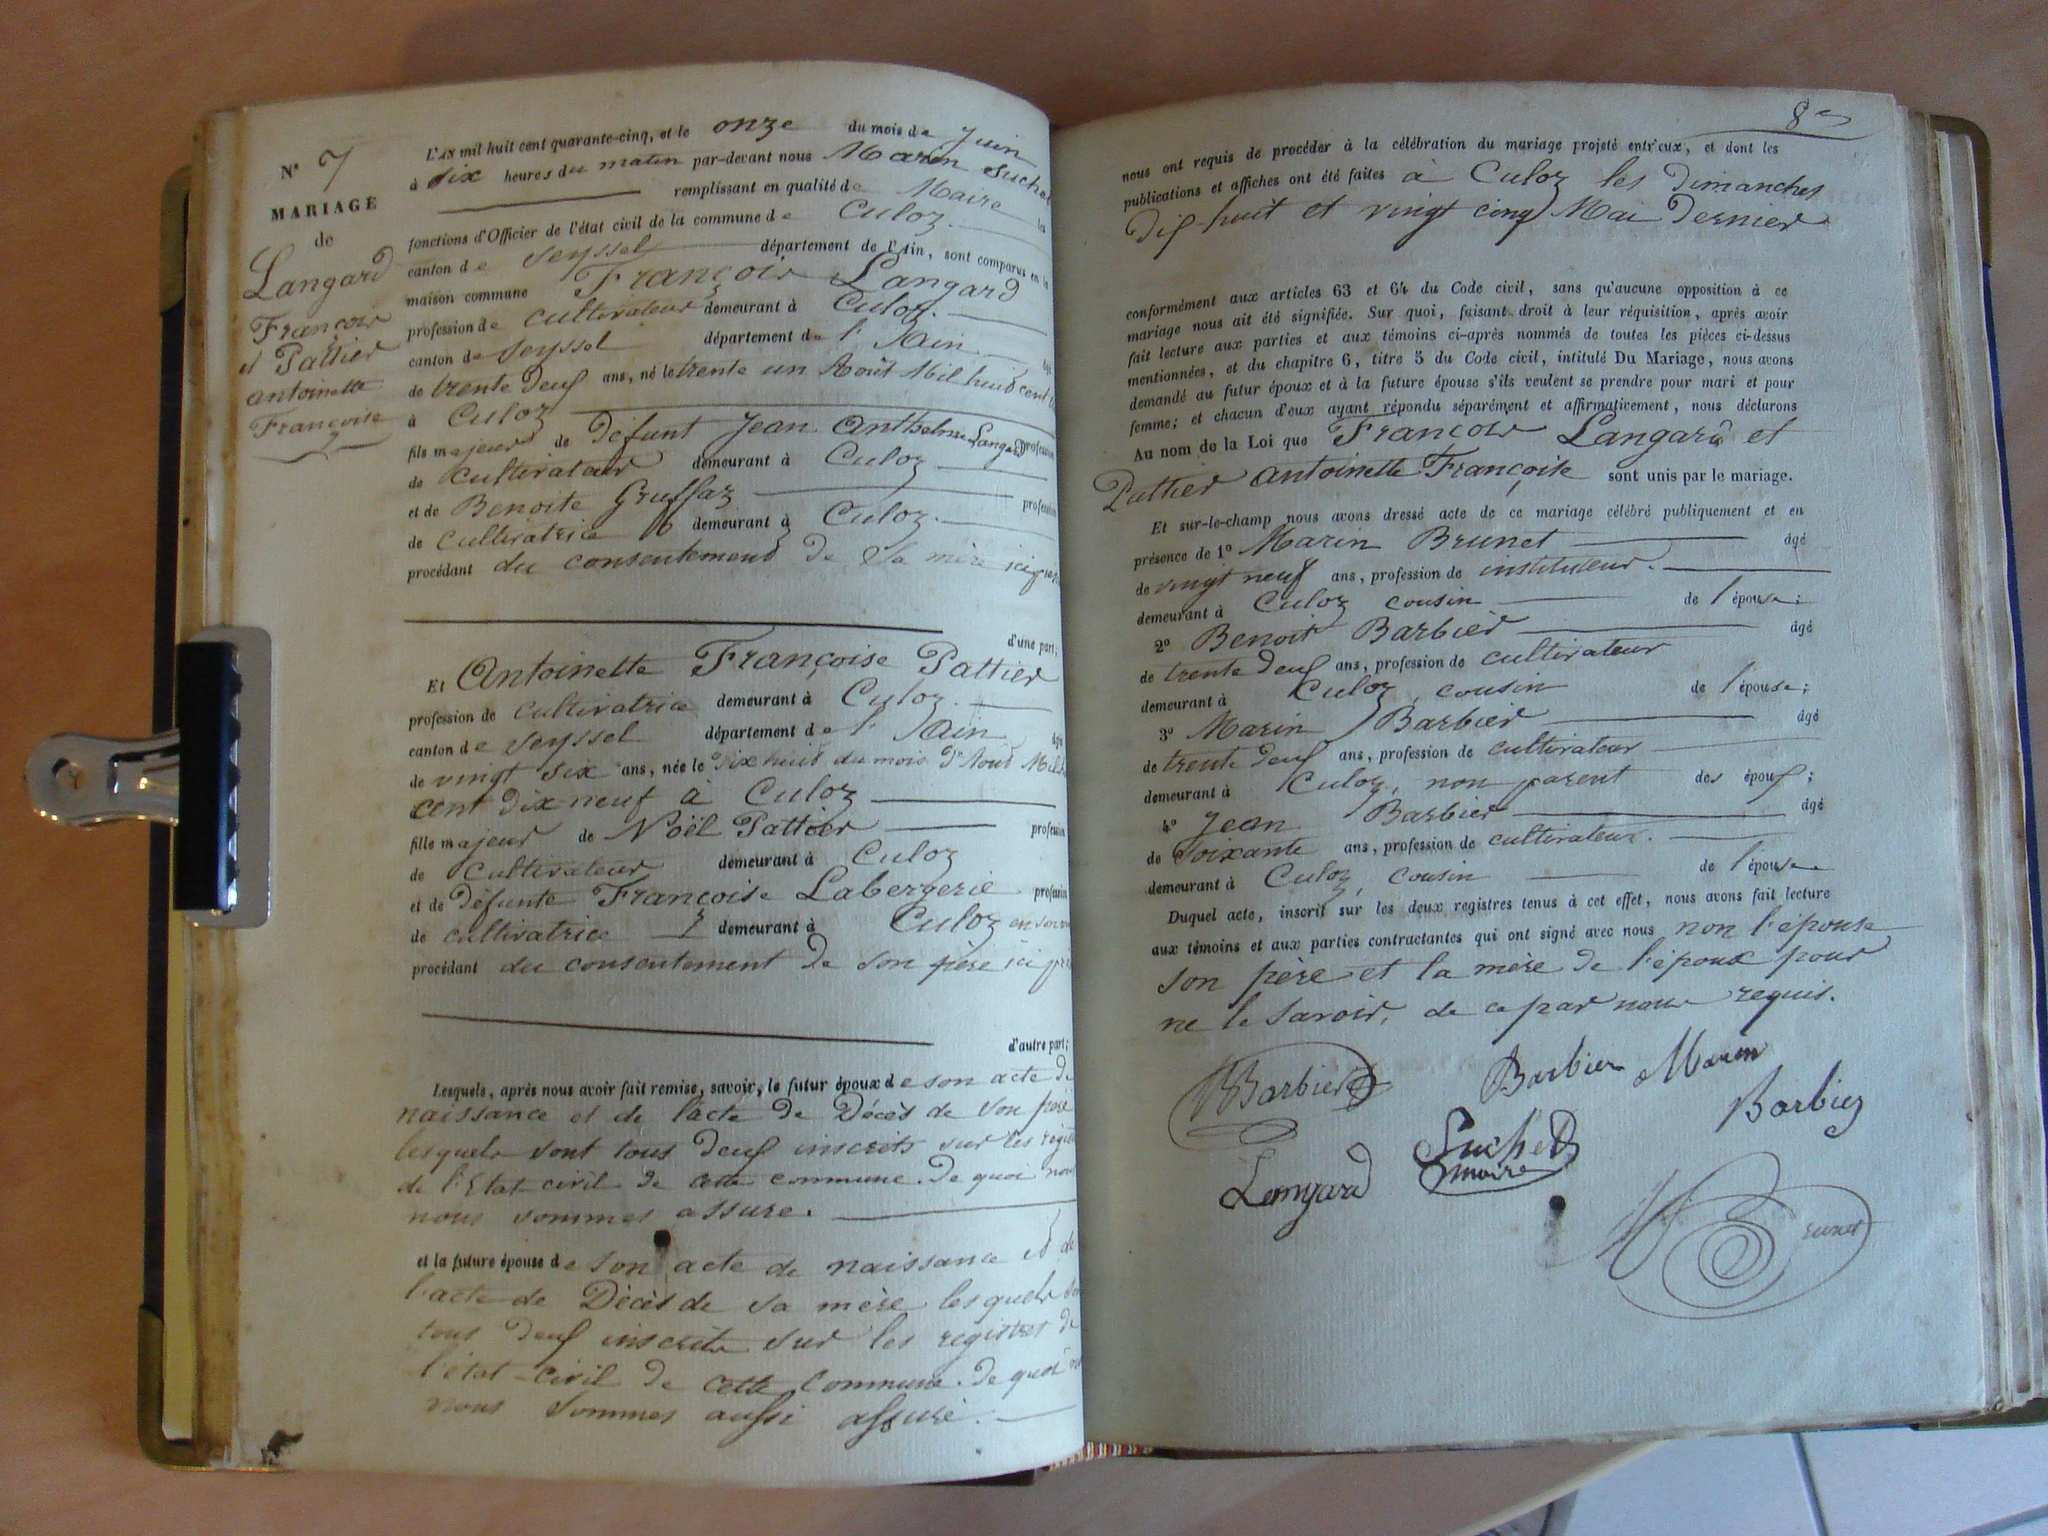 N° 7
MARIAGE
de
Langard
François
et Pattier
antoinette
Françoise
L'AN mil huit cent quarante-cinq, et le onze du mois de Juin
à dix heures du matin par-devant nous Marin Suchet
remplissant en qualité de Maire les
fonctions d'Officier de l'état civil de la commune de Culoz
canton de Seyssel département de l'Ain, sont comparus en la
maison commune François Langard
profession de cultivateur demeurant à Culoz.
canton de Seyssel département de l'Ain âgé
de trente deux ans, né le trente un Août Mil huit cent
à Culoz
fils majeur de défunt Jean Anthelme Langard profession
de cultivateur demeurant à Culoz
et de Benoite Gruffaz profession
de cultivatrice demeurant à Culoz.
procédant du consentement de Sa mère ici
d'une part;
Et Antoinette Françoise Pattier
profession de cultivatrice demeurant à Culoz.
canton de Seyssel département de l'Ain âgée
de vingt six ans, née le dix huit du mois d'Aout Mil
cent dix neuf à Culoz
fille majeur de Noël Pattier profession
de cultivateur demeurant à Culoz
et de défunte Françoise Labergerie profession
de cultivatrice demeurant à Culoz en son
procédant du consentement de son père ici
d'autre part;
Lesquels, après nous avoir fait remise, savoir, le futur époux de son acte de
naissance et de l'acte de Décès de son père
lesquels sont tous deux inscrits sur les
de l'Etat civil de cette commune. De quoi nous
nous sommes assure.
et la future épouse de son acte de naissance et de
l'acte de Décès de sa mère lesquels
tous deux inscrits sur les registres de
l'état civil de cette commune. De quoi
nous sommes aussi assuré.
8
nous ont requis de procéder à la célébration du mariage projeté entr'eux, et dont les
publications et affiches ont été faites à Culoz les dimanches
dix huit et vingt cinq Mai dernier
conformément aux articles 63 et 64 du Code civil, sans qu'aucune opposition à ce
mariage nous ait été signifiée. Sur quoi, faisant droit à leur réquisition, après avoir
fait lecture aux parties et aux témoins ci-après nommés de toutes les pièces ci-dessus
mentionnées, et du chapitre 6, titre 5 du Code civil, intitulé Du Mariage, nous avons
demandé au futur époux et à la future épouse s'ils veulent se prendre pour mari et pour
femme; et chacun d'eux ayant répondu séparément et affirmativement, nous déclarons
Au nom de la Loi que François Langard et
Pattier antoinette Françoise sont unis par le mariage.
Et sur-le-champ nous avons dressé acte de ce mariage célébré publiquement et en
présence de 1° Marin Brunet âgé
de vingt neuf ans, profession de instituteur.
demeurant à Culoz cousin de l'épouse;
2° Benoit Barbier âgé
de trente deux ans, profession de cultivateur
demeurant à Culoz, cousin de l'épouse;
3° Marin Barbier âgé
de trente deux ans, profession de cultivateur
demeurant à Culoz, non parent des époux;
4° Jean Barbier âgé
de Soixante ans, profession de cultivateur.
demeurant à Culoz, cousin de l'épouse
Duquel acte, inscrit sur les deux registres tenus à cet effet, nous avons fait lecture
aux témoins et aux parties contractantes qui ont signé avec nous non l'épouse
son père et la mère de l'époux pour
ne le savoir, de ce par nous requis.
Barbier
Barbier Marin
Barbier
Langard
Suchet
maire
Brunet